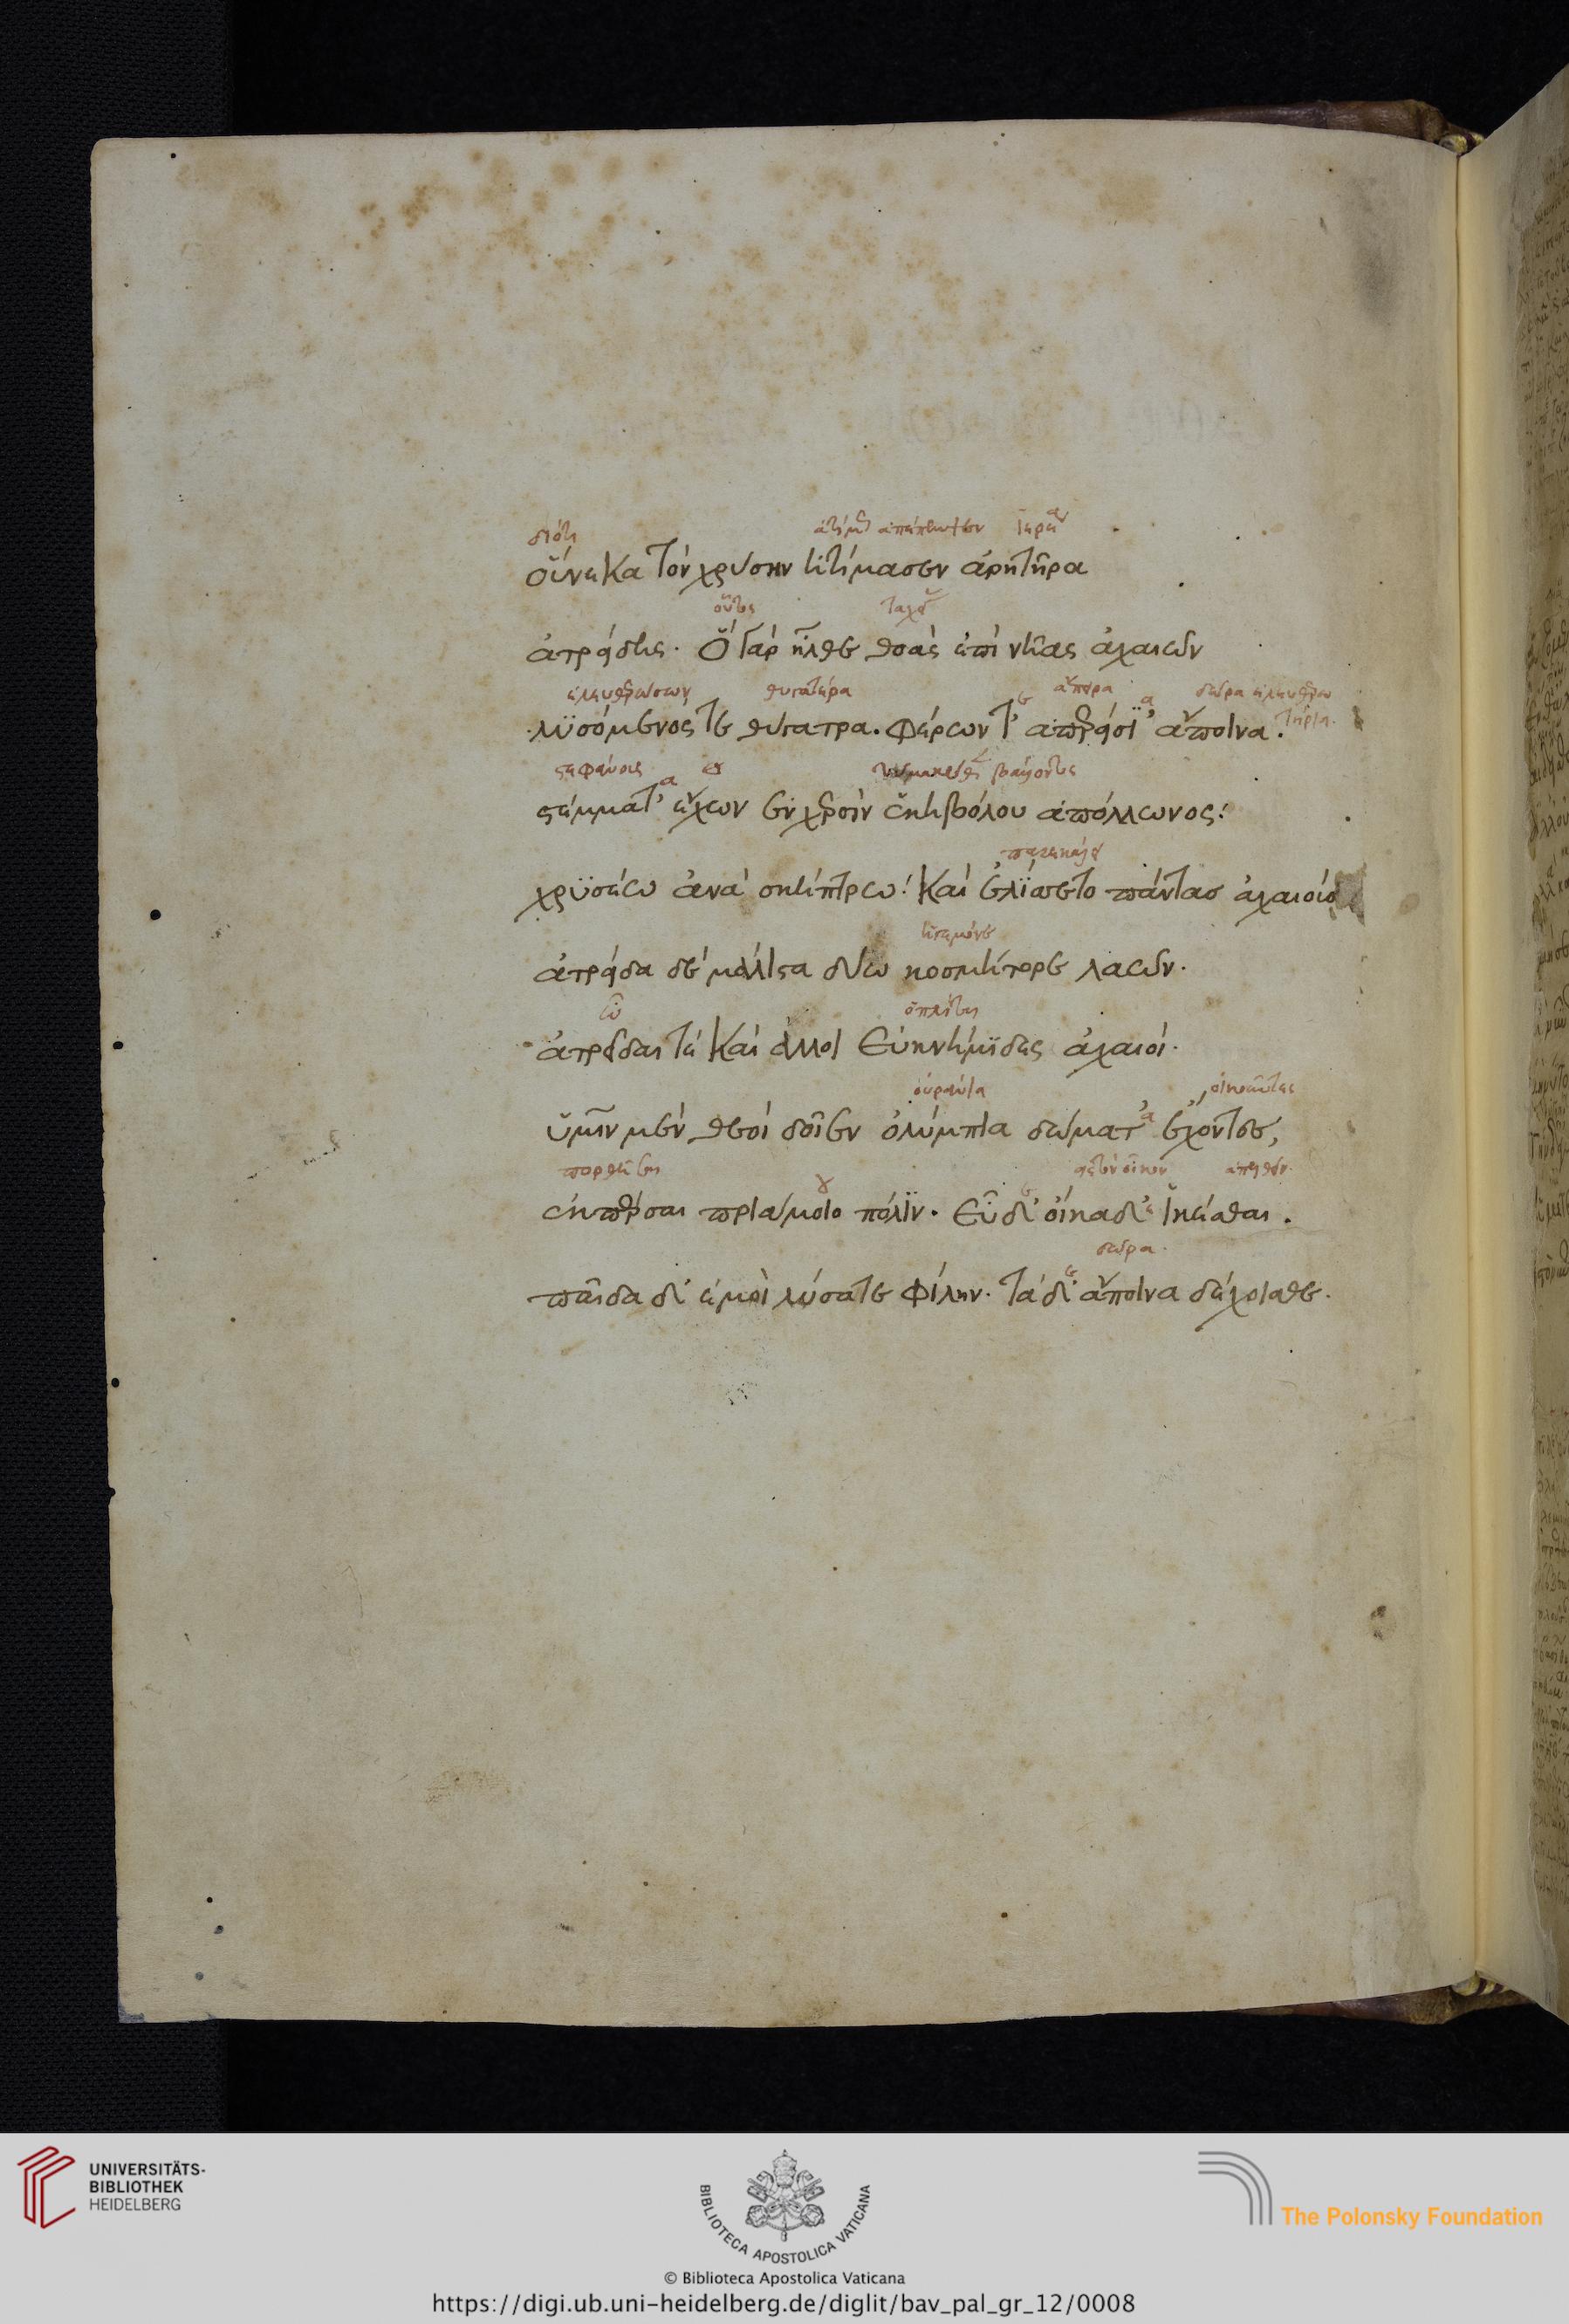 διότι ἱερέα
οὕνεκα τὸν χρύσην ἠτίμασεν ἀρητῆρα
οὗτος ταχείας
ἀτρείδης. ὃ γὰρ ἦλθε θοὰς ἐπὶ νῆας ἀχαιῶν
ἐλευθερώσων θυγατέρα ε ἄπειρα α δῶρα ἐλευθερω
λυσόμενός τε θύγατρα. φέρων τ' ἀπερείσϊ' ἄποινα. τήρια.
στεφάνους α
στέμματ' ἔχων ἐν χερσὶν ἑκηβόλου ἀπόλλωνος:
παρεκάλει
χρϋσέω ἀνὰ σκήπτρω: καὶ ἐλίσσετο πάντας ἀχαιούς
ἡγεμόνε
ἀτρείδα δὲ μάλιστα δύω κοσμήτορε λαῶν.
ὦ ὁπλῖται
ἀτρεῖδαι τὲ καὶ ἄλλοι ἐϋκνήμϊδες ἀχαιοί.
οὐράνια α οἰκοῦντες
ὑμῖν μὲν θεοὶ δοῖεν ὀλύμπια δώματ' ἔχοντες,
πορθῆσαι ου ε εἰς τὸν οἶκον ἀπελθεῖν.
ἐκπέρσαι πριάμοιο πόλϊν. εὖ δ' οἴκαδ' ἱκέσθαι.
ε δῶρα.
παῖδα δ' ἐμοὶ λύσατε φίλην. τὰ δ' ἄποινα δέχεσθε.
UNIVERSITÄTS-
BIBLIOTHEK
HEIDELBERG
BIBLIOTECA APOSTOLICA VATICANA
The Polonsky Foundation
© Biblioteca Apostolica Vaticana
https://digi.ub.uni-heidelberg.de/diglit/bav_pal_gr_12/0008